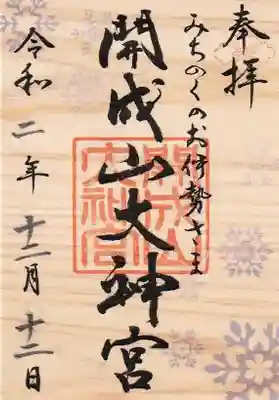 奉拝
みちのくのお伊勢さま
開成山大神宮
開成山大神宮
令和二年十二月十二日